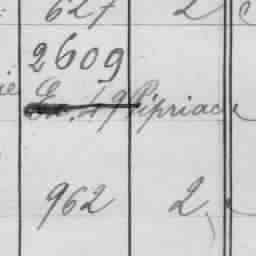 627 2
2609
Ex. 49 Pipriac
962 2